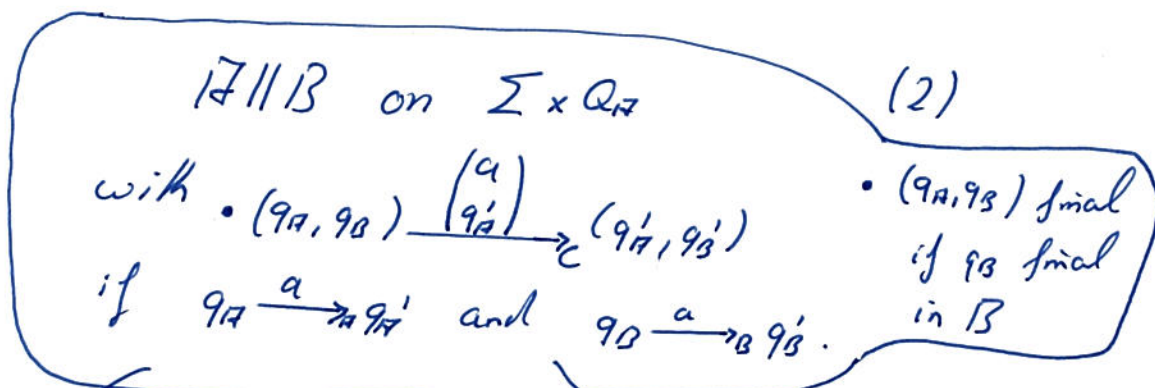 A||B on Σ × Q_A
(2)
with • (q_A, q_B) —(a q'_A)→_C (q'_A, q'_B)
if q_A —a→_A q'_A and q_B —a→_B q'_B.
• (q_A, q_B) final
if q_B final
in B